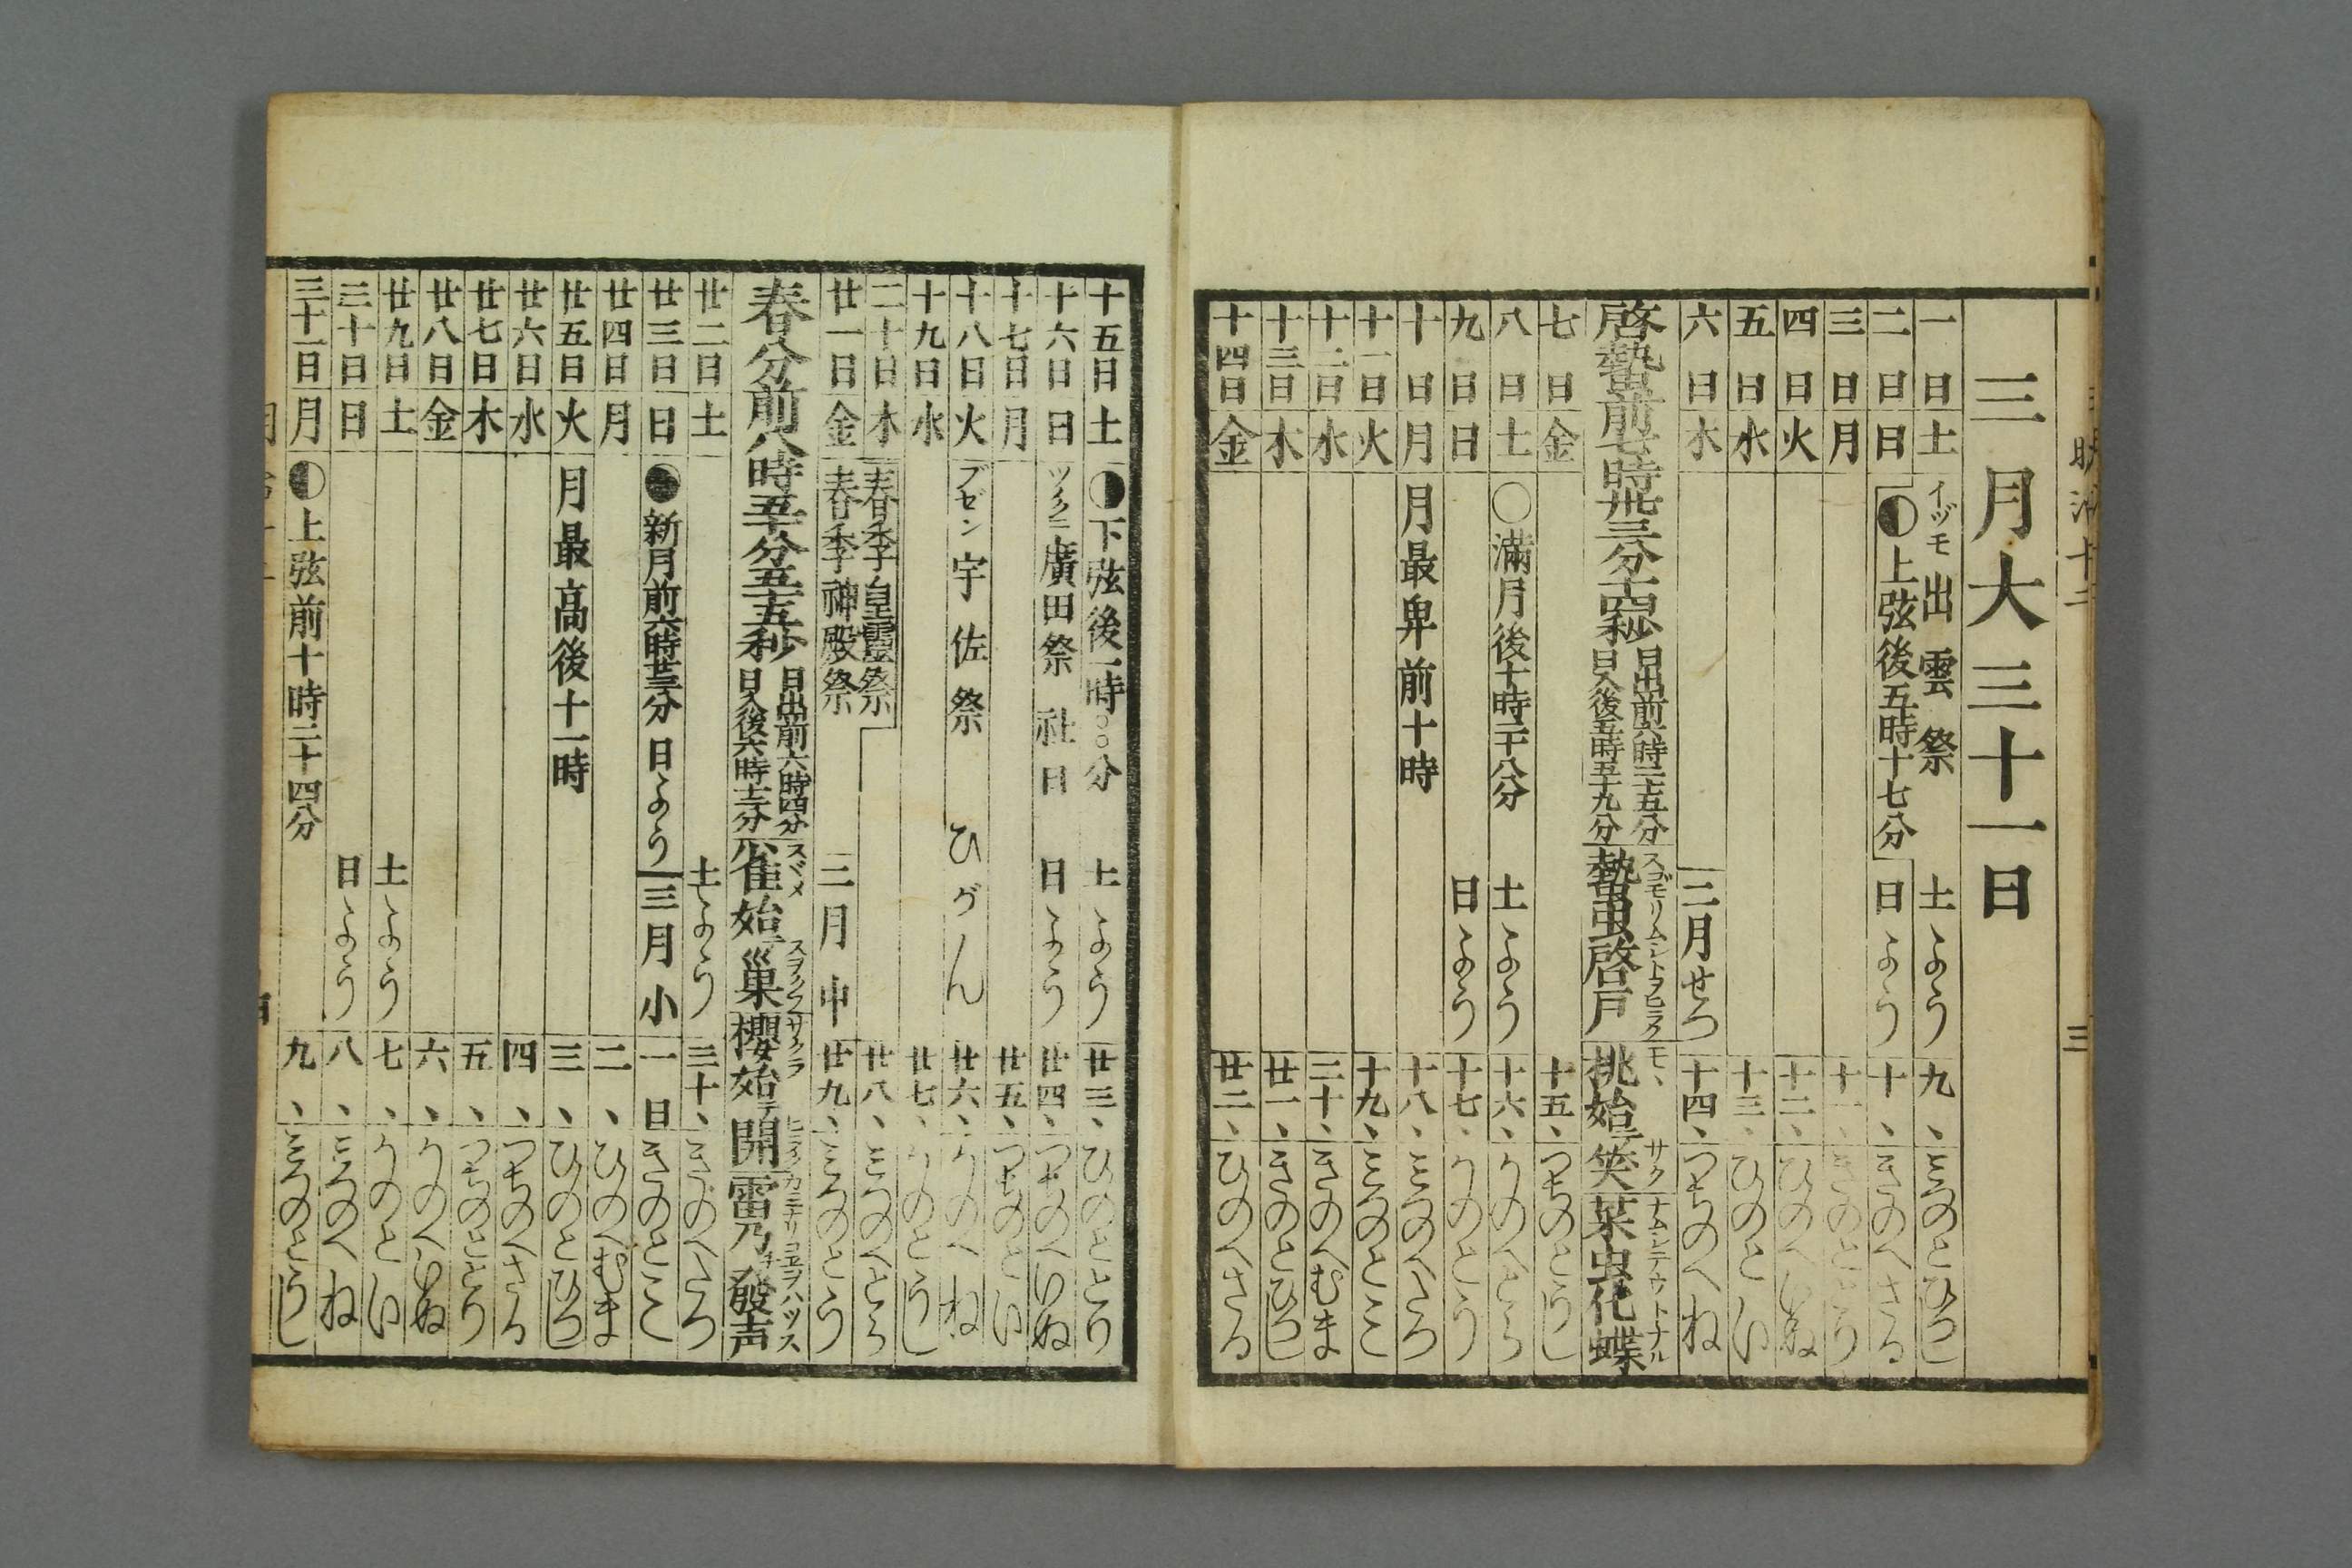 三
三月大三十一日
一日土 イヅモ 出雲祭 土よう 九、みづのとひつじ
二日日 上弦後五時十七分 日よう 十、きのへさる
三日月 十一、きのととり
四日火 十二、ひのへいぬ
五日水 十三、ひのとい
六日木 二月せつ 十四、つちのへね
啓蟄前七時卅三分 日出前六時二十五分 日入後五時五十九分 蟄虫啓戸 スゴモリムシトヲヒラク 桃始テ笑 モヽ サク 菜虫化蝶 ナムシテウトナル
七日金 十五、つちのとうし
八日土 満月後十時二十八分 土よう 十六、かのへとら
九日日 日よう 十七、かのとう
十日月 月最卑前十時 十八、みづのへたつ
十一日火 十九、みづのとみ
十二日水 二十、きのへむま
十三日木 廿一、きのとひつじ
十四日金 廿二、ひのへさる
十五日土 下弦後一時〇〇分 土よう 廿三、ひのととり
十六日日 廣田祭 社日 日よう 廿四、つちのへいぬ
十七日月 廿五、つちのとい
十八日火 ブゼン 宇佐祭 ひがん 廿六、かのへね
十九日水 廿七、かのとうし
二十日木 春季皇靈祭 廿八、みづのへとら
廿一日金 春季神殿祭 二月中 廿九、みづのとう
春分前八時五十分五十五秒 日出前六時四分 日入後六時十二分 雀始テ巣 スヾメ スヲクフ 櫻始テ開 サクラ ヒラク 雷乃チ發声 カミナリコヱヲハツス
廿二日土 土よう 三十、きのへたつ
廿三日日 新月前六時廿三分 日よう 三月小 一日 きのとみ
廿四日月 二、ひのへむま
廿五日火 月最高後十一時 三、ひのとひつじ
廿六日水 四、つちのへさる
廿七日木 五、つちのととり
廿八日金 六、かのへいぬ
廿九日土 土よう 七、かのとい
三十日日 日よう 八、みづのへね
三十一日月 上弦前十時二十四分 九、みづのとうし